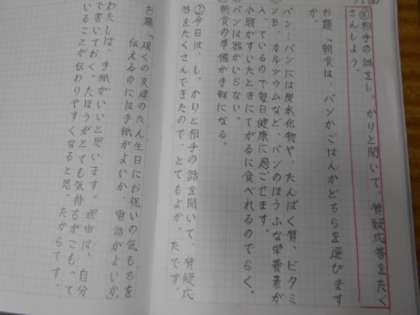 ◎相手の話をしっかりと聞いて、質疑応答をたく
さんしよう。
お題「朝食は、パンかごはんかどちらを選びます
か。
パン…パンには炭水化物や、たんぱく質、ビタミ
ンB、カルシウムなど、パンのほうふな栄養素が
入っているので毎日健康に過ごせます。
小腹がすいたときにてがるに食べれるのでらく。
パンは器がいらない。
朝の準備が手軽になる。
今日は、しっかりと相手の話を聞いて、質疑応
答をたくさんできたので、とてもよかったです。
お題「遠くの友達のたん生日にお祝いの気もちを
伝えるのには手紙がよいか、電話がよいか。
わたしは、手紙がいいと思います。理由は、自分
で書いておくったほうがとても気持ちがこもって
いることが伝わりやすくなると思ったからです。